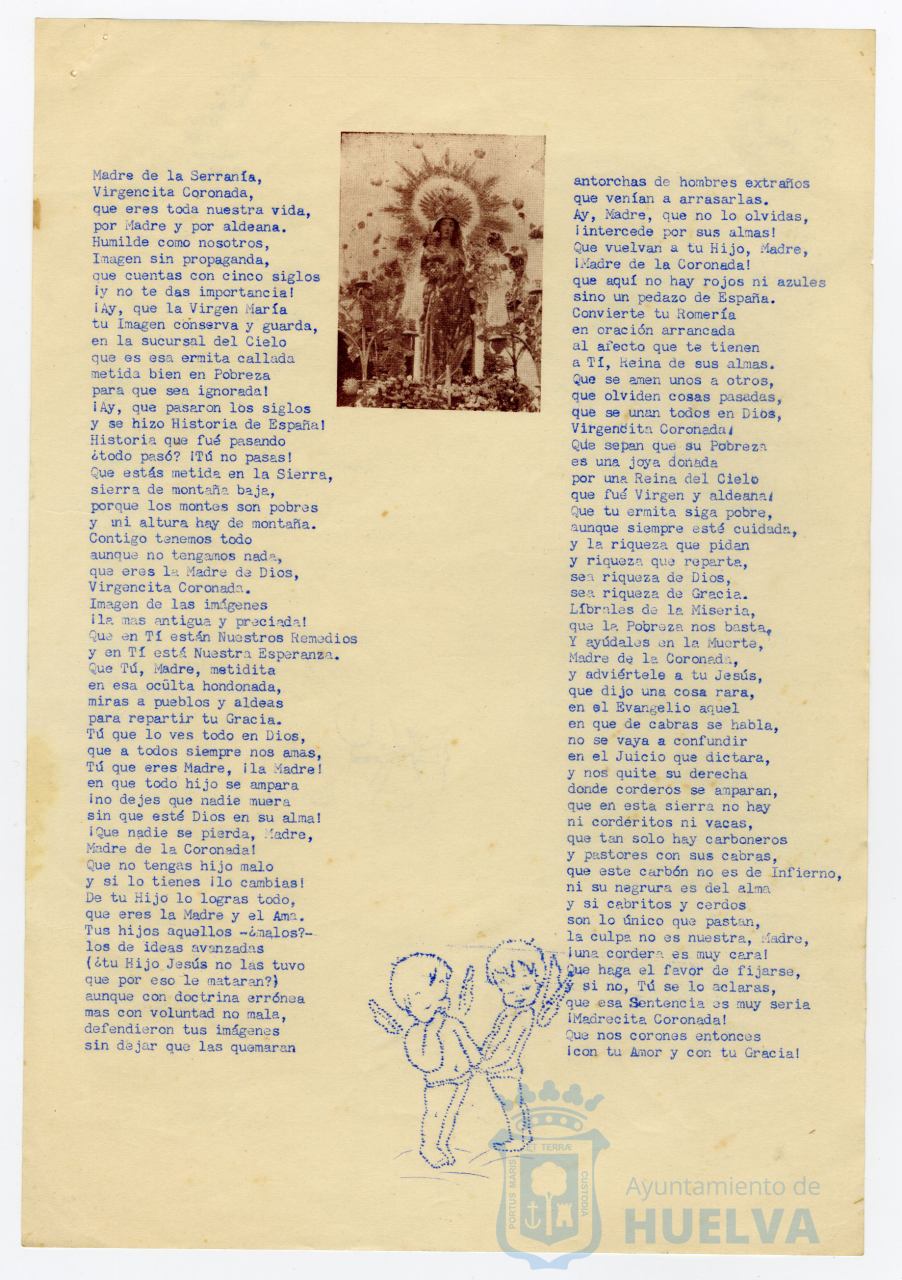 Madre de la Serranía,
Virgencita Coronada,
que eres toda nuestra vida,
por Madre y por aldeana.
Humilde como nosotros,
Imagen sin propaganda,
que cuentas con cinco siglos
¡y no te das importancia!
¡Ay, que la Virgen María
tu Imagen conserva y guarda,
en la sucursal del Cielo
que es esa ermita callada
metida bien en Pobreza
para que sea ignorada!
¡Ay, que pasaron los siglos
y se hizo Historia de España!
Historia que fué pasando
¿todo pasó? ¡Tú no pasas!
Que estás metida en la Sierra,
sierra de montaña baja,
porque los montes son pobres
y ni altura hay de montaña.
Contigo tenemos todo
aunque no tengamos nada,
que eres la Madre de Dios,
Virgencita Coronada.
Imagen de las imágenes
¡la mas antigua y preciada!
Que en Tí están Nuestros Remedios
y en Tí está Nuestra Esperanza.
Que Tú, Madre, metidita
en esa oculta hondonada,
miras a pueblos y aldeas
para repartir tu Gracia.
Tú que lo ves todo en Dios,
que a todos siempre nos amas,
Tú que eres Madre, ¡la Madre!
en que todo hijo se ampara
¡no dejes que nadie muera
sin que esté Dios en su alma!
¡Que nadie se pierda, Madre,
Madre de la Coronada!
Que no tengas hijo malo
y si lo tienes ¡lo cambias!
De tu Hijo lo logras todo,
que eres la Madre y el Ama.
Tus hijos aquellos -¿malos?-
los de ideas avanzadas
(¿tu Hijo Jesús no las tuvo
que por eso le mataran?)
aunque con doctrina errónea
mas con voluntad no mala,
defendieron tus imágenes
sin dejar que las quemaran
antorchas de hombres extraños
que venían a arrasarlas.
Ay, Madre, que no lo olvidas,
¡intercede por sus almas!
Que vuelvan a tu Hijo, Madre,
¡Madre de la Coronada!
que aquí no hay rojos ni azules
sino un pedazo de España.
Convierte tu Romería
en oración arrancada
al afecto que te tienen
a Tí, Reina de sus almas.
Que se amen unos a otros,
que olviden cosas pasadas,
que se unan todos en Dios,
Virgencita Coronada!
Que sepan que su Pobreza
es una joya donada
por una Reina del Cielo
que fué Virgen y aldeana!
Que tu ermita siga pobre,
aunque siempre esté cuidada,
y la riqueza que pidan
y riqueza que reparta,
sea riqueza de Dios,
sea riqueza de Gracia.
Líbrales de la Miseria,
que la Pobreza nos basta,
Y ayúdales en la Muerte,
Madre de la Coronada,
y adviértele a tu Jesús,
que dijo una cosa rara,
en el Evangelio aquel
en que de cabras se habla,
no se vaya a confundir
en el Juicio que dictara,
y nos quite su derecha
donde corderos se amparan,
que en esta sierra no hay
ni corderitos ni vacas,
que tan solo hay carboneros
y pastores con sus cabras,
que este carbón no es de Infierno,
ni su negrura es del alma
y si cabritos y cerdos
son lo único que pastan,
la culpa no es nuestra, Madre,
¡una cordera es muy cara!
Que haga el favor de fijarse,
y si no, Tú se lo aclaras,
que esa Sentencia es muy seria
¡Madrecita Coronada!
Que nos corones entonces
¡con tu Amor y con tu Gracia!
PORTUS MARIS
ET TERRÆ
CUSTODIA
Ayuntamiento de
HUELVA